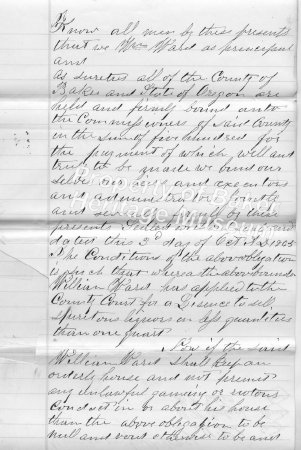 Know all men by these presents
that we Wm Ward as principal
and
as sureties all of the County of
Baker and State of Oregon are
held and firmly bound unto
the Commissioners of said County
in the sum of five hundred for
the payment of which well and
truly to be made we bind our
selves and executors
and administrators
and by these
presents Sealed
dated this 3d day of Oct A.D. 1865
The Conditions of the above obligation
is such that whereas the above bounden
William Ward has applied to the
County Court for a Lisence to sell
Spiritous liquors in less quantities
than one quart
Now if the said
William Ward shall keep an
orderly house and not permit
any unlawful gaming or riotous
conduct in or about his house
than the above obligation to be
null and void otherwise to be and
Property of Baker
Heritage Museum